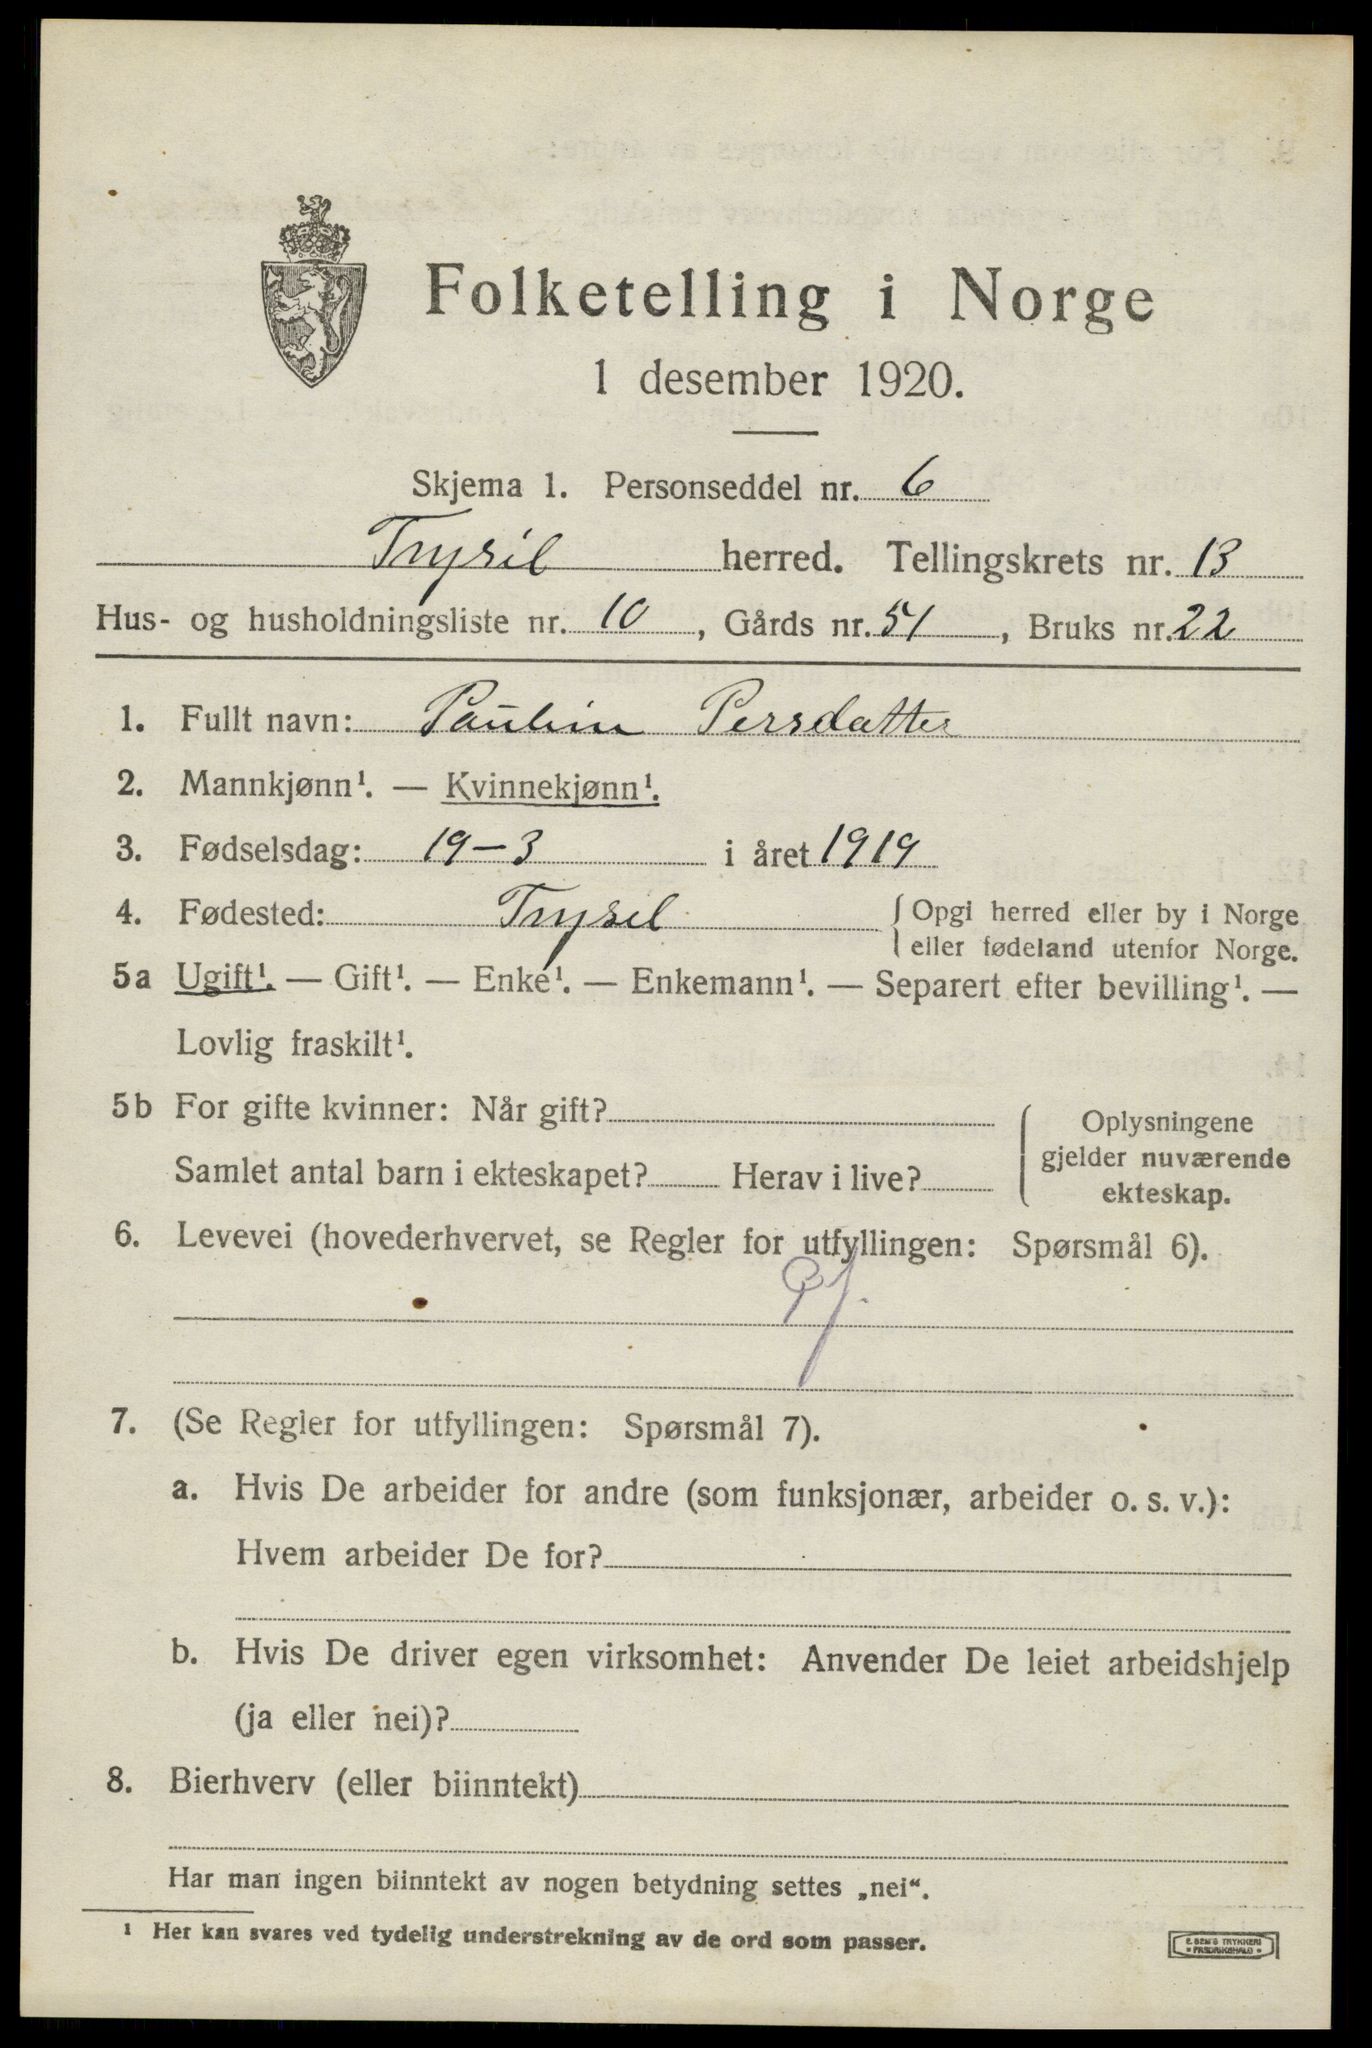 Folketelling i Norge
1 desember 1920.
Skjema 1. Personseddel nr. 6
Trysil herred. Tellingskrets nr. 13
Hus- og husholdningsliste nr. 10, Gårds nr. 51, Bruks nr. 22
1. Fullt navn: Paulin Persdatter
2. Mannkjønn¹. — Kvinnekjønn¹.
3. Fødselsdag: 19-3 i året 1919
4. Fødested: Trysil { Opgi herred eller by i Norge
eller fødeland utenfor Norge.
5a Ugift¹. — Gift¹. — Enke¹. — Enkemann¹. — Separert efter bevilling¹. —
Lovlig fraskilt¹.
5b For gifte kvinner: Når gift?
Samlet antal barn i ekteskapet? Herav i live?
Oplysningene
gjelder nuværende
ekteskap.
6. Levevei (hovederhvervet, se Regler for utfyllingen: Spørsmål 6).
7. (Se Regler for utfyllingen: Spørsmål 7).
a. Hvis De arbeider for andre (som funksjonær, arbeider o. s. v.):
Hvem arbeider De for?
b. Hvis De driver egen virksomhet: Anvender De leiet arbeidshjelp
(ja eller nei)?
8. Bierhverv (eller biinntekt)
Har man ingen biinntekt av nogen betydning settes „nei“.
¹ Her kan svares ved tydelig understrekning av de ord som passer.
E. SEM'S TRYKKERI
FREDRIKSHALD